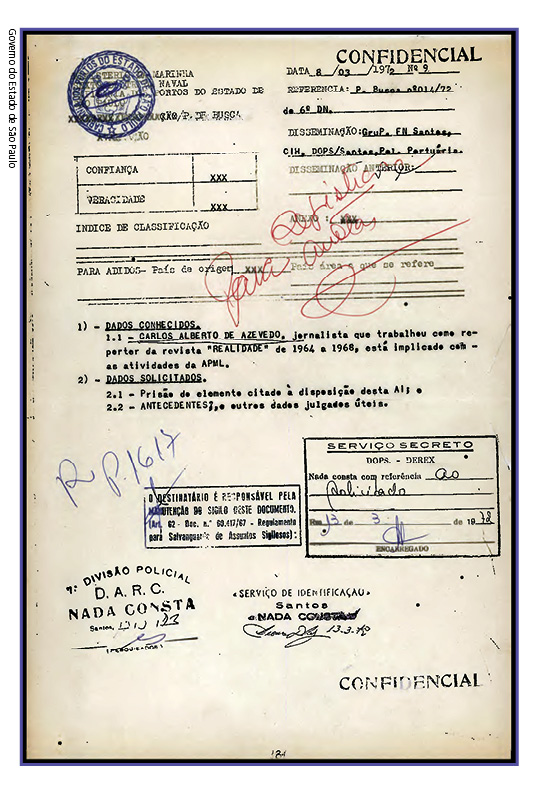 CONFIDENCIAL
MARINHA
NAVAL
PORTOS DO ESTADO DE
ÇÃO/P. DE BUSCA
DATA 8 /03 /1972 Nº 9
REFERENCIA: P. Busca nº014/72
do 6º DN.
DISSEMINAÇÃO: GruP. FN Santos,
CIH, DOPS/Santos, Pol. Portuária.
DISSEMINAÇÃO ANTERIOR:
ANEXO : XXX
CONFIANÇA XXX
VERACIDADE XXX
INDICE DE CLASSIFICAÇÃO
PARA ADIDOS- País de origem XXX País área a que se refere
Para
1) - DADOS CONHECIDOS.
1.1 - CARLOS ALBERTO DE AZEVEDO, jornalista que trabalhou como re-
porter da revista "REALIDADE" de 1964 a 1968, está implicado com
as atividades da APML.
2) - DADOS SOLICITADOS.
2.1 - Prisão do elemento citado à disposição desta AI; e
2.2 - ANTECEDENTES, e outros dados julgados úteis.
P.1617
O DESTINATÁRIO É RESPONSÁVEL PELA
MANUTENÇÃO DO SIGILO DESTE DOCUMENTO.
(Art. 62 - Dec. n.º 60.417/67 - Regulamento
para Salvanguarda de Assuntos Sigilosos):
SERVIÇO SECRETO
DOPS. - DEREX
Nada consta com referência ao
solicitado
Em 13 de 3 de 1972
ENCARREGADO
7.ª DIVISÃO POLICIAL
D. A. R. C.
NADA CONSTA
Santos,
(PESQUISADOR)
SERVIÇO DE IDENTIFICAÇÃO
Santos
NADA CONSTA
13.3.72
CONFIDENCIAL
Governo do Estado de São Paulo